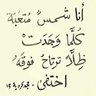 أنا شمسٌ مُتعَبة
كُلَّما وَجَدَتْ
ظِلًّا ترتاحُ فوقَهُ
اختفى